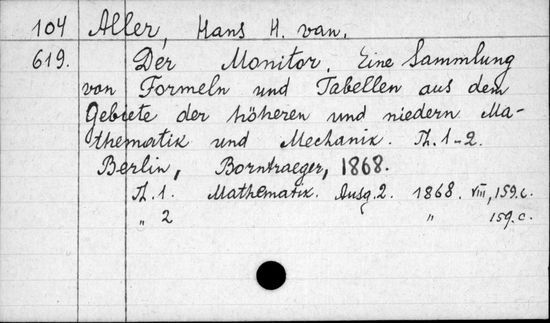 104 Aller, Hans H. van.
619. Der Monitor. Eine Sammlung
von Formeln und Tabellen aus dem
Gebiete der höheren und niedern Ma-
thematik und Mechanik. Th. 1-2.
Berlin, Borntraeger, 1868.
Th. 1. Mathematik. Ausg. 2. 1868. VIII, 159 c.
„ 2 „ 159. c.